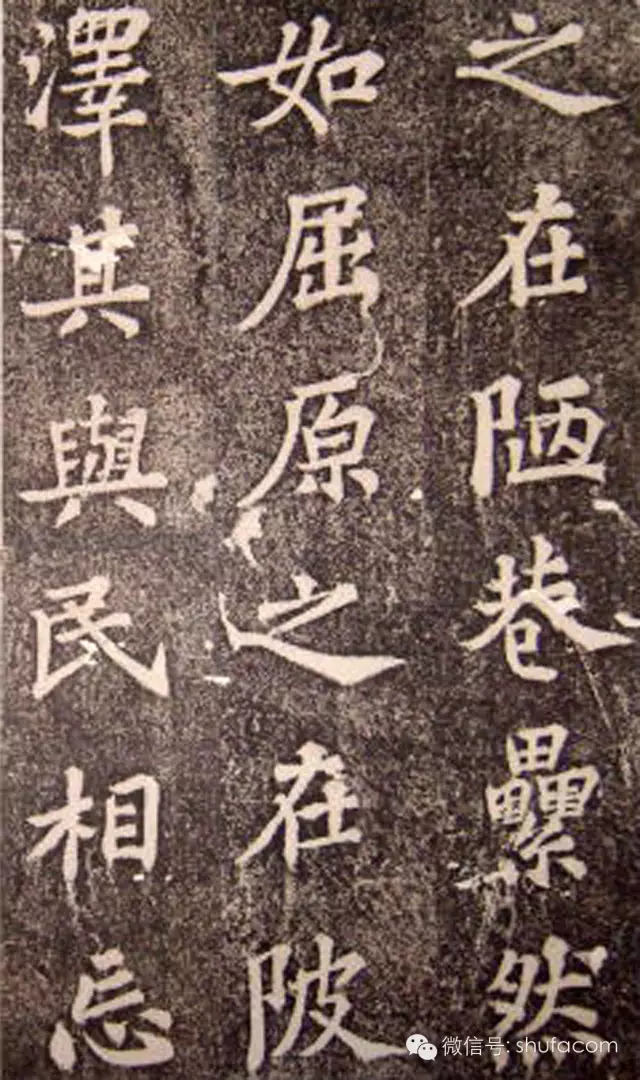 之在陋巷纍然
如屈原之在陂
澤其與民相忘
微信号: shufacom